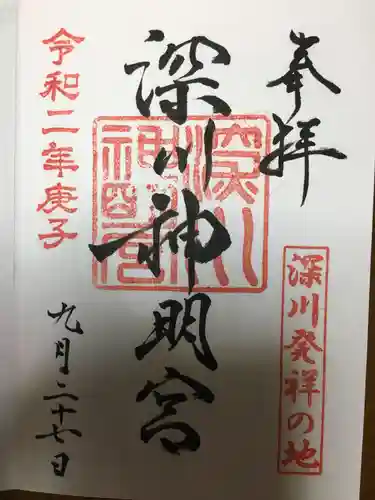 奉拝
深川発祥の地
深川神明宮
深川神明宮
令和二年庚子
九月二十七日